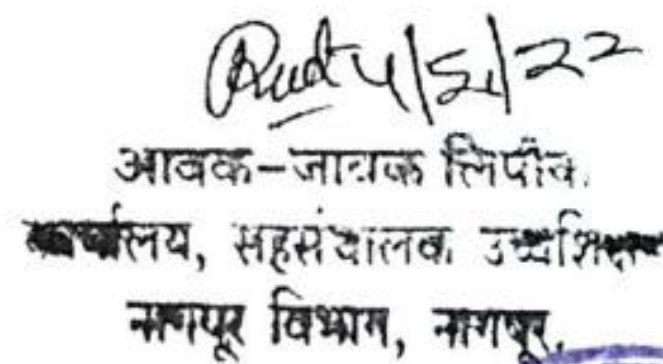 Recd 4/5/22
आवक-जावक लिपीक
कार्यालय, सहसंचालक उच्चशिक्षण
नागपूर विभाग, नागपूर.